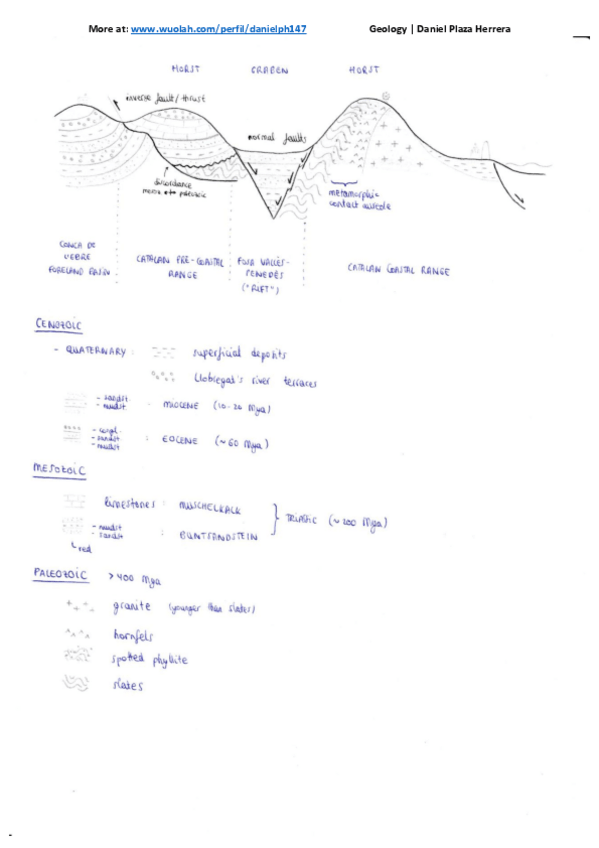 More at: www.wuolah.com/perfil/danielph147 Geology | Daniel Plaza Herrera
HORST GRABEN HORST
inverse fault/thrust
normal faults
discordance
metamorphic
contact aureole
CONCA DE
L'EBRE
FORELAND BASIN
CATALAN PRE-COASTAL
RANGE
FOSA VALLÈS-
PENEDÈS
("RIFT")
CATALAN COASTAL RANGE
CENOZOIC
- QUATERNARY: superficial deposits
Llobregat's river terraces
- sandst
- mudst - MIOCENE (10-20 Mya)
- congl.
- sandst
- mudst : EOCENE (~60 Mya)
MESOZOIC
limestones: MUSCHELKALK
TRIASSIC (~200 Mya)
- mudst
- sandst : BUNTSANDSTEIN
red
PALEOZOIC >400 Mya
granite (younger than slates)
hornfels
spotted phyllite
slates